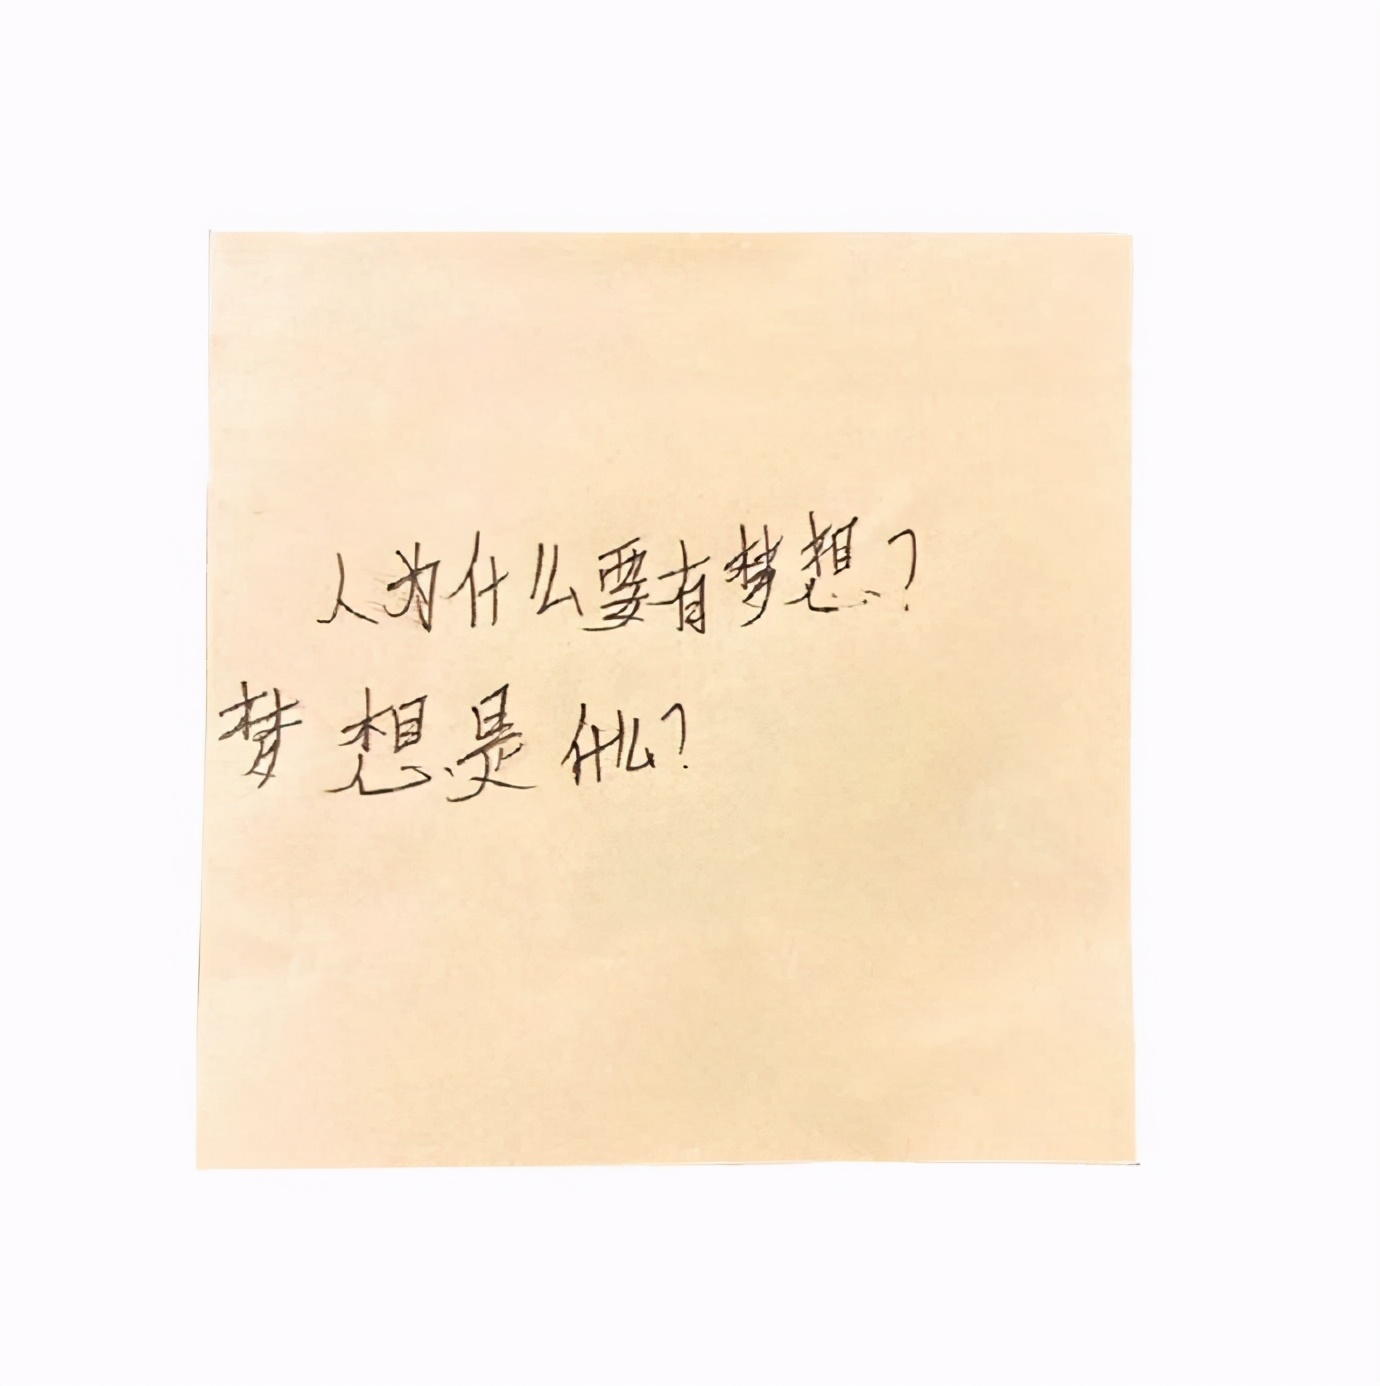 人为什么要有梦想?
梦想是什么?